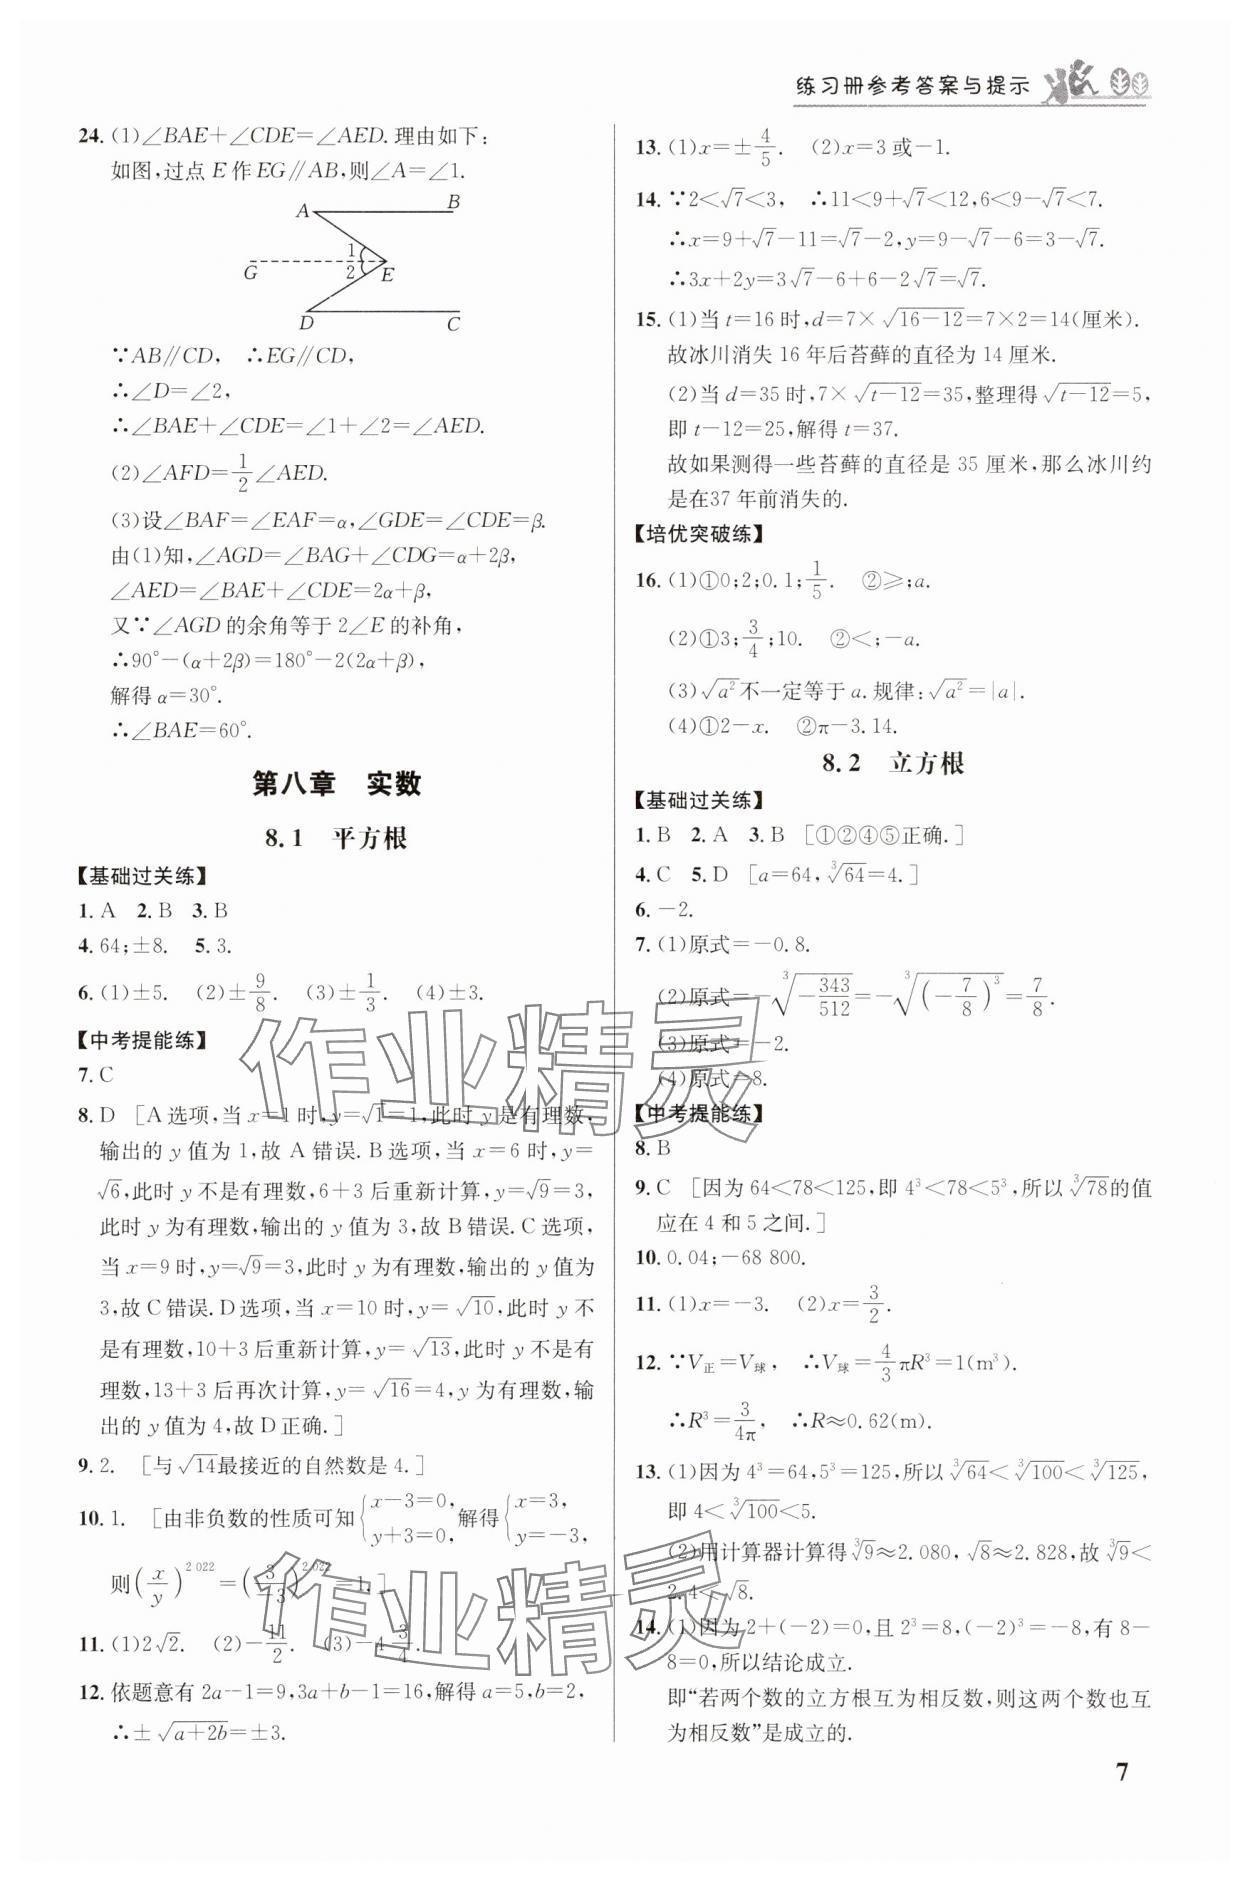 练习册参考答案与提示
24. (1)∠BAE+∠CDE=∠AED. 理由如下:
如图,过点 E 作 EG∥AB,则∠A=∠1.
A B
1
G 2 E
D C
∵AB∥CD, ∴EG∥CD,
∴∠D=∠2,
∴∠BAE+∠CDE=∠1+∠2=∠AED.
(2)∠AFD=1/2∠AED.
(3)设∠BAF=∠EAF=α,∠GDE=∠CDE=β.
由(1)知,∠AGD=∠BAG+∠CDG=α+2β,
∠AED=∠BAE+∠CDE=2α+β,
又∵∠AGD 的余角等于 2∠E 的补角,
∴90°-(α+2β)=180°-2(2α+β),
解得 α=30°.
∴∠BAE=60°.
第八章 实数
8.1 平方根
【基础过关练】
1. A 2. B 3. B
4. 64;±8. 5. 3.
6. (1)±5. (2)±9/8. (3)±1/3. (4)±3.
【中考提能练】
7. C
8. D [A 选项,当 x=1 时,y=√1=1,此时 y 是有理数,
输出的 y 值为 1,故 A 错误. B 选项,当 x=6 时,y=
√6,此时 y 不是有理数,6+3 后重新计算,y=√9=3,
此时 y 为有理数,输出的 y 值为 3,故 B 错误. C 选项,
当 x=9 时,y=√9=3,此时 y 为有理数,输出的 y 值为
3,故 C 错误. D 选项,当 x=10 时,y=√10,此时 y 不
是有理数,10+3 后重新计算,y=√13,此时 y 不是有
理数,13+3 后再次计算,y=√16=4,y 为有理数,输
出的 y 值为 4,故 D 正确.]
9. 2. [与√14最接近的自然数是 4.]
10. 1. [由非负数的性质可知{x-3=0, y+3=0, 解得{x=3, y=-3,
则(x/y)^2 022=(3/-3)^2 022=1.]
11. (1)2√2. (2)-11/2. (3)-4 3/4.
12. 依题意有 2a-1=9,3a+b-1=16,解得 a=5,b=2,
∴±√(a+2b)=±3.
13. (1)x=±4/5. (2)x=3 或-1.
14. ∵2<√7<3, ∴11<9+√7<12,6<9-√7<7.
∴x=9+√7-11=√7-2,y=9-√7-6=3-√7.
∴3x+2y=3√7-6+6-2√7=√7.
15. (1)当 t=16 时,d=7×√(16-12)=7×2=14(厘米).
故冰川消失 16 年后苔藓的直径为 14 厘米.
(2)当 d=35 时,7×√(t-12)=35,整理得√(t-12)=5,
即 t-12=25,解得 t=37.
故如果测得一些苔藓的直径是 35 厘米,那么冰川约
是在37 年前消失的.
【培优突破练】
16. (1)①0;2;0.1;1/5. ②≥;a.
(2)①3;3/4;10. ②<;-a.
(3)√a²不一定等于 a. 规律:√a²=|a|.
(4)①2-x. ②π-3.14.
8.2 立方根
【基础过关练】
1. B 2. A 3. B [①②④⑤正确.]
4. C 5. D [a=64,∛64=4.]
6. -2.
7. (1)原式=-0.8.
(2)原式=-∛(-343/512)=-∛((-7/8)³)=7/8.
(3)原式=-2.
(4)原式=8.
【中考提能练】
8. B
9. C [因为 64<78<125,即 4³<78<5³,所以∛78的值
应在 4 和 5 之间.]
10. 0.04;-68 800.
11. (1)x=-3. (2)x=3/2.
12. ∵V正=V球, ∴V球=4/3πR³=1(m³).
∴R³=3/4π, ∴R≈0.62(m).
13. (1)因为 4³=64,5³=125,所以∛64<∛100<∛125,
即 4<∛100<5.
(2)用计算器计算得∛9≈2.080,√8≈2.828,故∛9<
2.4<√8.
14. (1)因为 2+(-2)=0,且 2³=8,(-2)³=-8,有 8-
8=0,所以结论成立.
即“若两个数的立方根互为相反数,则这两个数也互
为相反数”是成立的.
7
作业精灵
作业精灵